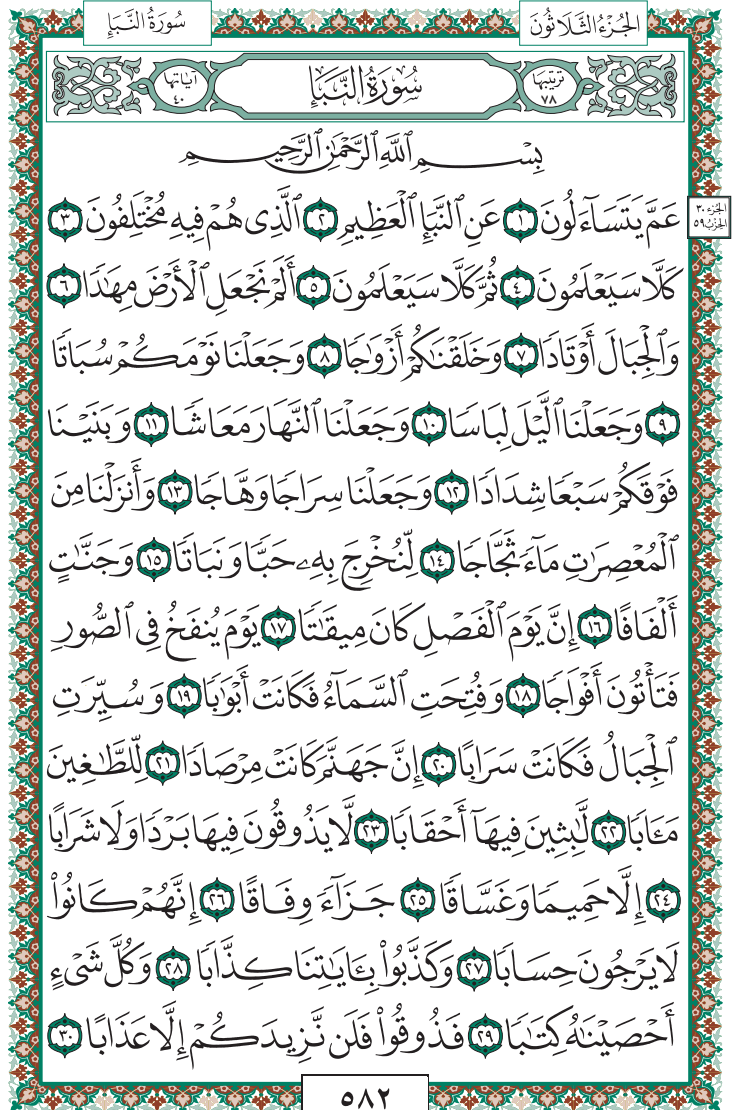 الجُزْءُ الثَّلَاثُونَ
سُورَةُ النَّبَإِ
ترتيبها ٧٨ سُورَةُ النَّبَإِ آياتها ٤٠
بِسْمِ ٱللَّهِ ٱلرَّحْمَٰنِ ٱلرَّحِيمِ
الجزء ٣٠
الحزب ٥٩
عَمَّ يَتَسَآءَلُونَ ١ عَنِ ٱلنَّبَإِ ٱلْعَظِيمِ ٢ ٱلَّذِى هُمْ فِيهِ مُخْتَلِفُونَ ٣
كَلَّا سَيَعْلَمُونَ ٤ ثُمَّ كَلَّا سَيَعْلَمُونَ ٥ أَلَمْ نَجْعَلِ ٱلْأَرْضَ مِهَٰدًا ٦
وَٱلْجِبَالَ أَوْتَادًا ٧ وَخَلَقْنَٰكُمْ أَزْوَٰجًا ٨ وَجَعَلْنَا نَوْمَكُمْ سُبَاتًا
٩ وَجَعَلْنَا ٱلَّيْلَ لِبَاسًا ١٠ وَجَعَلْنَا ٱلنَّهَارَ مَعَاشًا ١١ وَبَنَيْنَا
فَوْقَكُمْ سَبْعًا شِدَادًا ١٢ وَجَعَلْنَا سِرَاجًا وَهَّاجًا ١٣ وَأَنزَلْنَا مِنَ
ٱلْمُعْصِرَٰتِ مَآءً ثَجَّاجًا ١٤ لِّنُخْرِجَ بِهِۦ حَبًّا وَنَبَاتًا ١٥ وَجَنَّٰتٍ
أَلْفَافًا ١٦ إِنَّ يَوْمَ ٱلْفَصْلِ كَانَ مِيقَٰتًا ١٧ يَوْمَ يُنفَخُ فِى ٱلصُّورِ
فَتَأْتُونَ أَفْوَاجًا ١٨ وَفُتِحَتِ ٱلسَّمَآءُ فَكَانَتْ أَبْوَٰبًا ١٩ وَسُيِّرَتِ
ٱلْجِبَالُ فَكَانَتْ سَرَابًا ٢٠ إِنَّ جَهَنَّمَ كَانَتْ مِرْصَادًا ٢١ لِّلطَّٰغِينَ
مَـَٔابًا ٢٢ لَّٰبِثِينَ فِيهَآ أَحْقَابًا ٢٣ لَّا يَذُوقُونَ فِيهَا بَرْدًا وَلَا شَرَابًا
٢٤ إِلَّا حَمِيمًا وَغَسَّاقًا ٢٥ جَزَآءً وِفَاقًا ٢٦ إِنَّهُمْ كَانُوا۟
لَا يَرْجُونَ حِسَابًا ٢٧ وَكَذَّبُوا۟ بِـَٔايَٰتِنَا كِذَّابًا ٢٨ وَكُلَّ شَىْءٍ
أَحْصَيْنَٰهُ كِتَٰبًا ٢٩ فَذُوقُوا۟ فَلَن نَّزِيدَكُمْ إِلَّا عَذَابًا ٣٠
٥٨٢